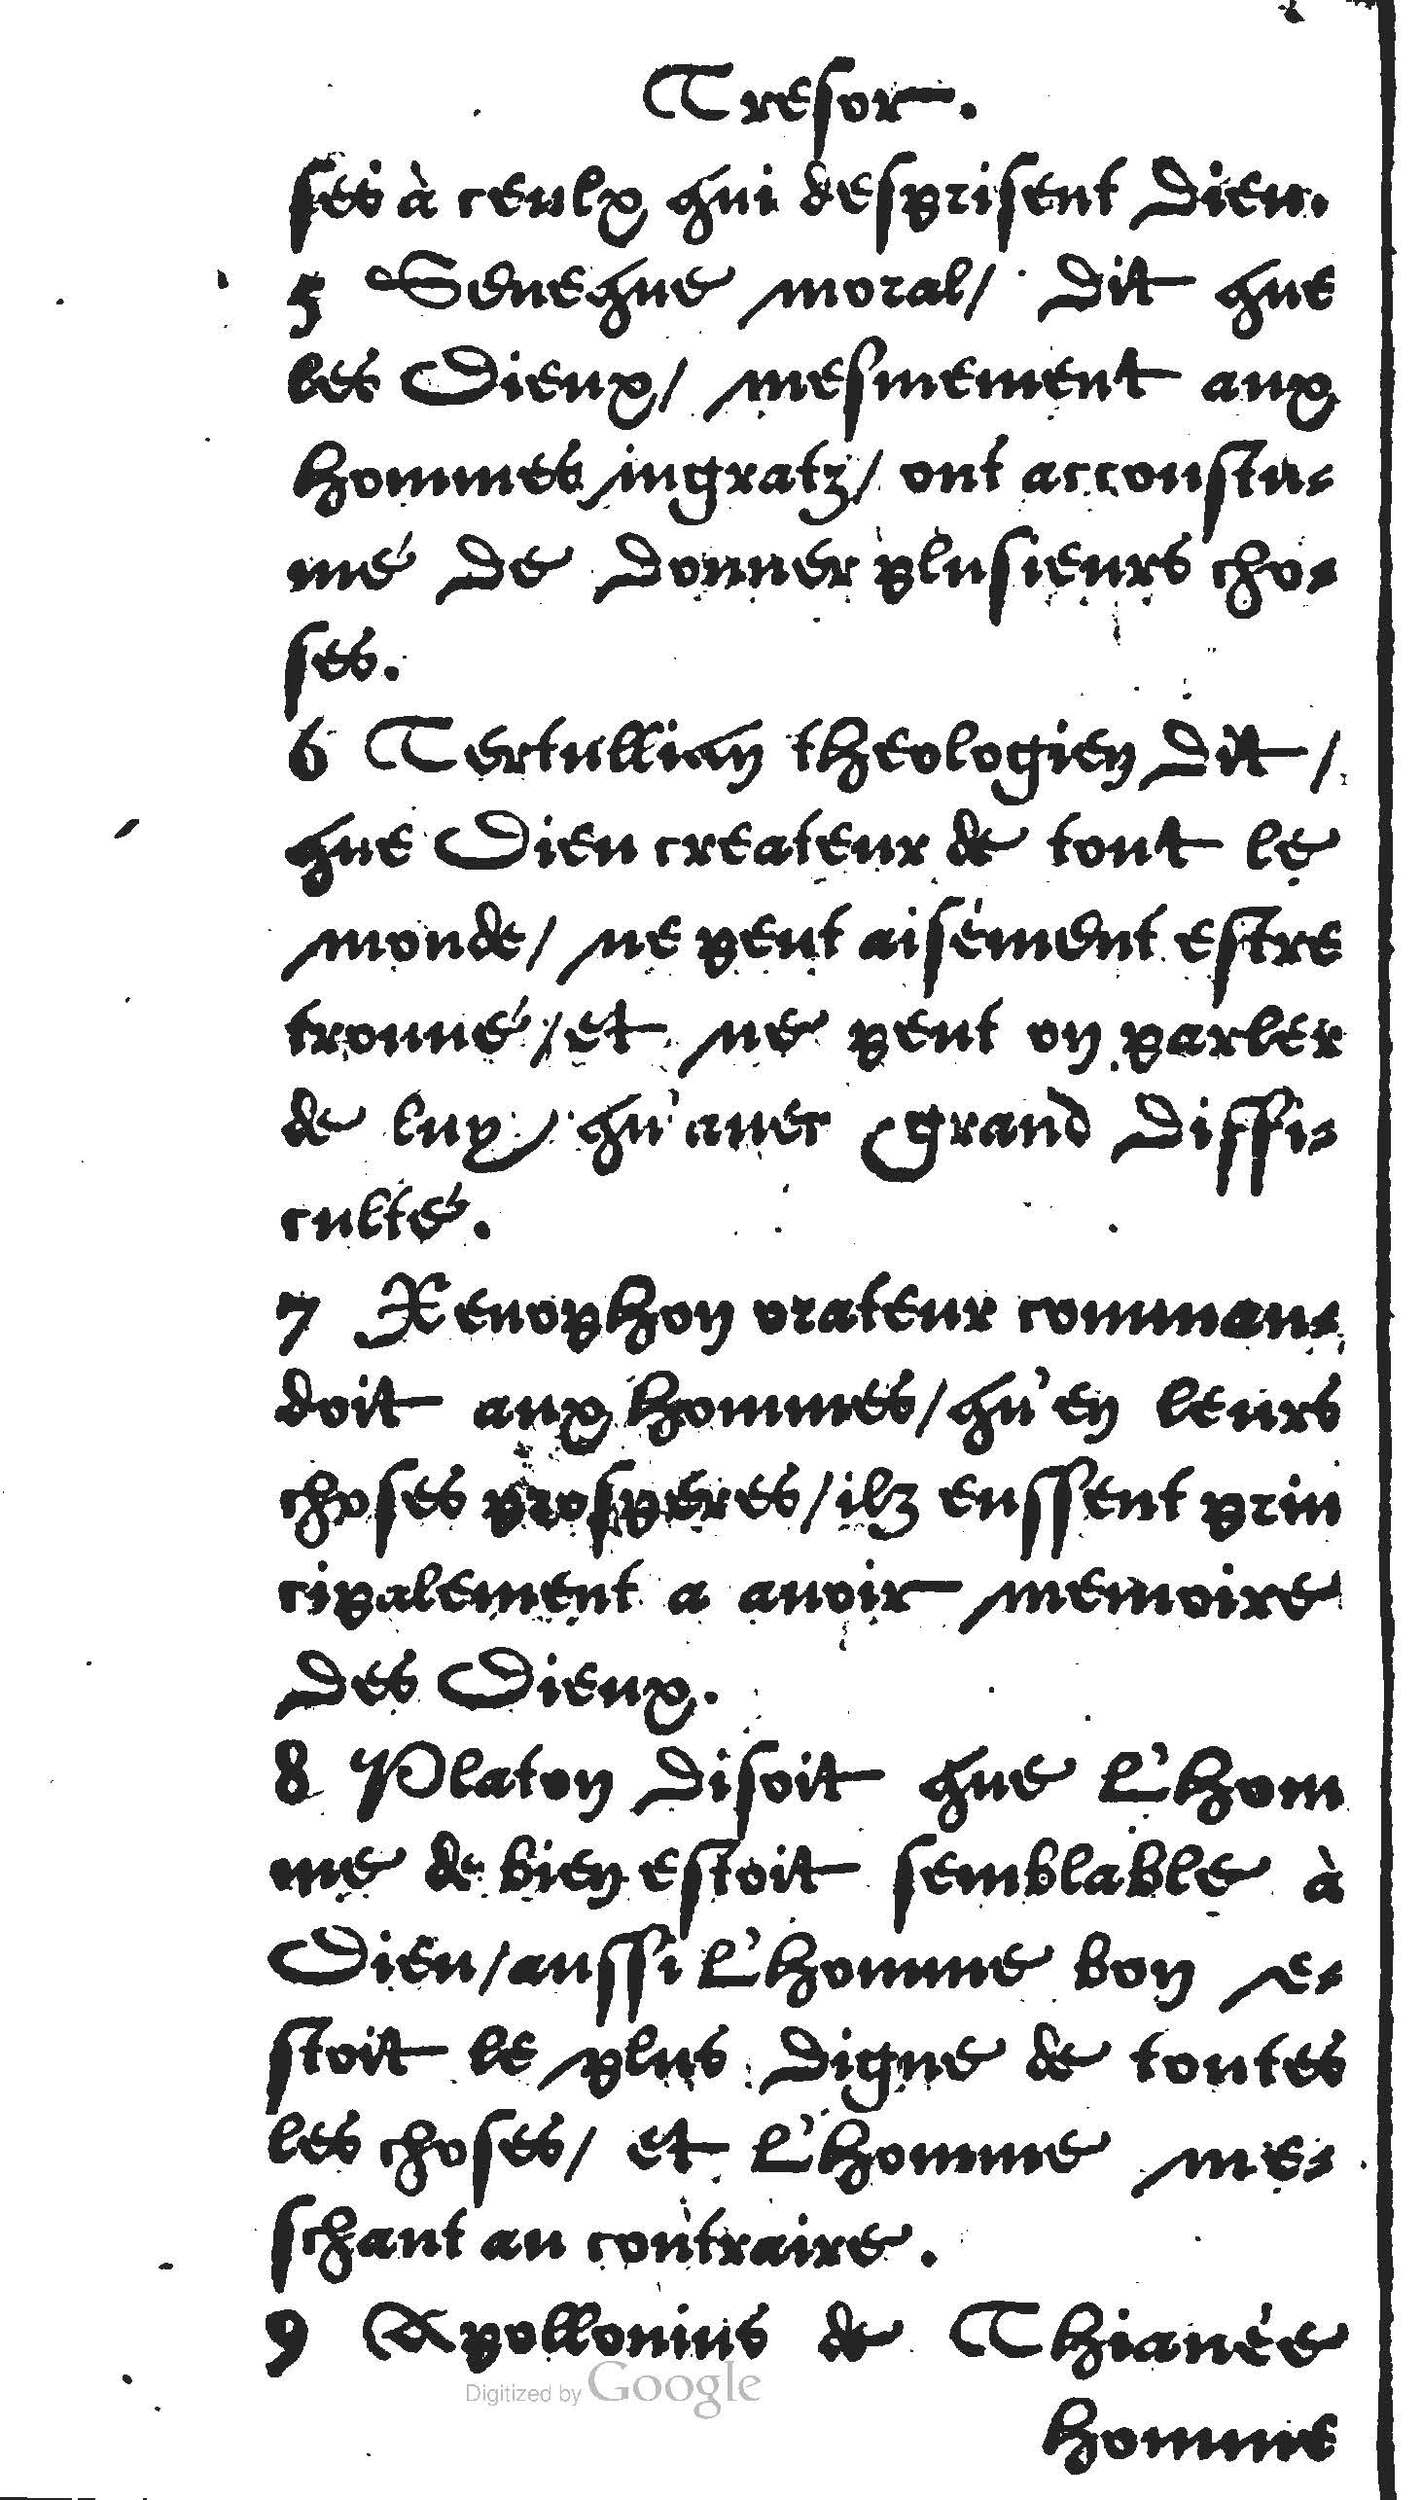 Tresor.
ses à ceulx qui desprisent Dieu.
5 Seneque moral/ dit que
les Dieux/ mesmement aux
hommes ingratz/ ont accoustu-
mé de donner plusieurs cho-
ses.
6 Tertullian theologien dit/
que Dieu createur de tout le
monde/ ne peut aisément estre
trouué/ et ne peut on parler
de luy/ qu'auec grand diffi-
culté.
7 Xenophon orateur comman-
doit aux hommes/ qu'en leurs
choses prosperes/ ilz eussent prin
cipalement a auoir memoire
des Dieux.
8 Platon disoit que L'hom
me de bien estoit semblable à
Dieu/ aussi L'homme bon e-
stoit le plus digne de toutes
les choses/ et L'homme me-
schant au contraire.
9 Apollonius de Thianée
Digitized by Google
homme